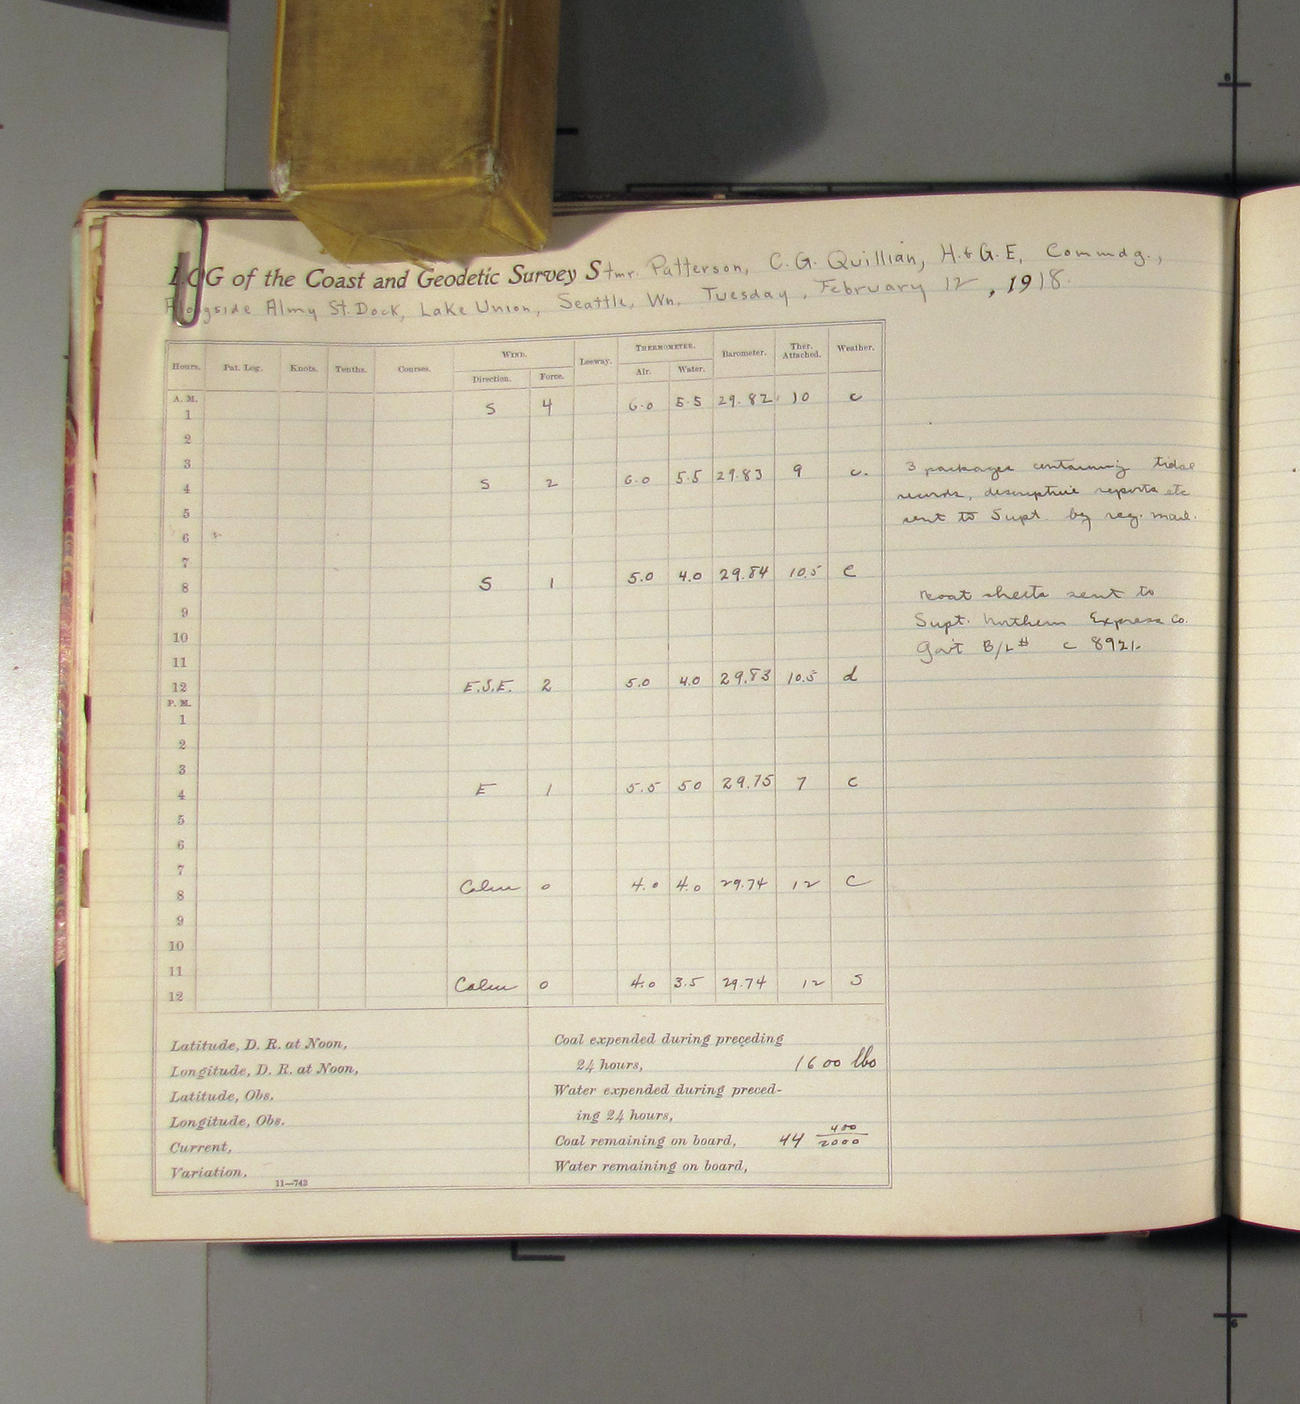 LOG of the Coast and Geodetic Survey Stmr. Patterson, C. G. Quillian, H. & G. E, Commdg.,
Alongside Almy St. Dock, Lake Union, Seattle, Wn. Tuesday, February 12, 1918.
Hours. Pat. Log. Knots. Tenths. Courses. Wind. Leeway. Thermometer. Barometer. Ther. Attached. Weather.
Direction. Force. Air. Water.
A. M.
1 S 4 6.0 5.5 29.82 10 c
2
3
4 S 2 6.0 5.5 29.83 9 c.
5
6
7
8 S 1 5.0 4.0 29.84 10.5 c
9
10
11
12 E.S.E. 2 5.0 4.0 29.83 10.5 d
P. M.
1
2
3
4 E 1 5.5 5 0 29.75 7 c
5
6
7
8 Calm 0 4.0 4.0 29.74 12 c
9
10
11
12 Calm 0 4.0 3.5 29.74 12 S
3 packages containing tidal
records, descriptive reports etc
sent to Supt. by reg. mail.
sheets sent to
Supt. Northern Express Co.
Gov't B/L # c 8921.
Latitude, D. R. at Noon,
Longitude, D. R. at Noon,
Latitude, Obs.
Longitude, Obs.
Current,
Variation,
11—742
Coal expended during preceding
24 hours, 1600 lbs
Water expended during preced-
ing 24 hours,
Coal remaining on board, 44 400/2000
Water remaining on board,